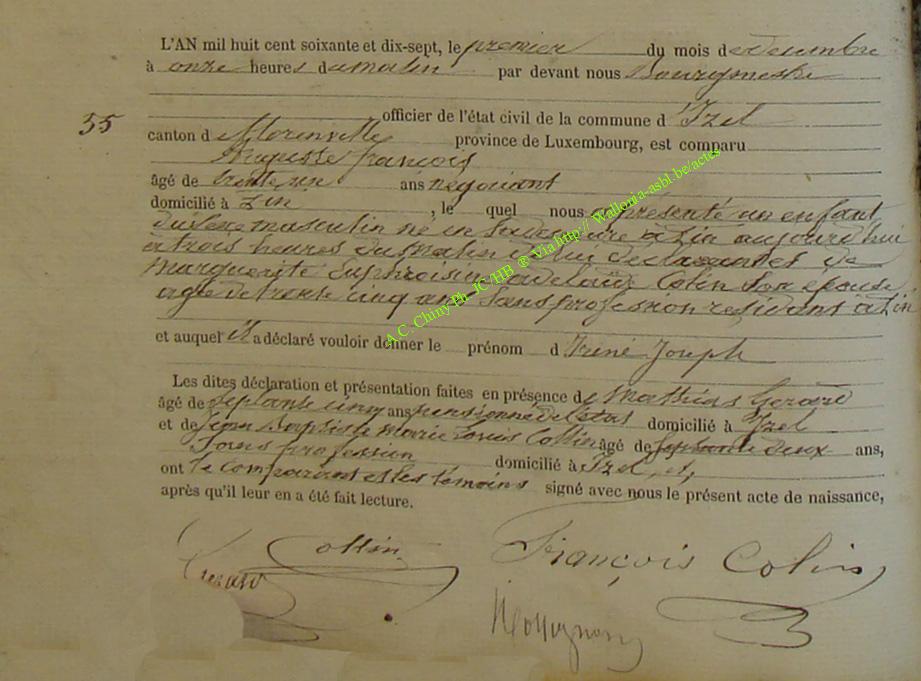 L'AN mil huit cent soixante et dix-sept, le premier du mois de decembre
à onze heures du matin par devant nous Bourgmestre
officier de l'état civil de la commune d'Izel
55
canton de Florenville province de Luxembourg, est comparu
Auguste François
âgé de trente un ans négociant
domicilié à Izel, le quel nous a présenté un enfant
du sexe masculin né en sa demeure à Izel aujourd'hui
à trois heures du matin de lui déclarant et de
Marguerite Euphroisine Adelaïde Colin son épouse
agée de trente cinq ans sans profession residant à Izel
et auquel il a déclaré vouloir donner le prénom d'Iréné Joseph
Les dites déclaration et présentation faites en présence de Mathias Gerard
âgé de septante cinq ans pensionné de l'état domicilié à Izel
et de Jean Baptiste Marie Louis Collin âgé de septante deux ans,
sans profession domicilié à Izel, et,
ont le comparant et les témoins signé avec nous le présent acte de naissance,
après qu'il leur en a été fait lecture.
Collin François Colin
Gerard
A.C. Chiny Ph. JC/HB ® Via http:// Wallonia-asbl.be/actes